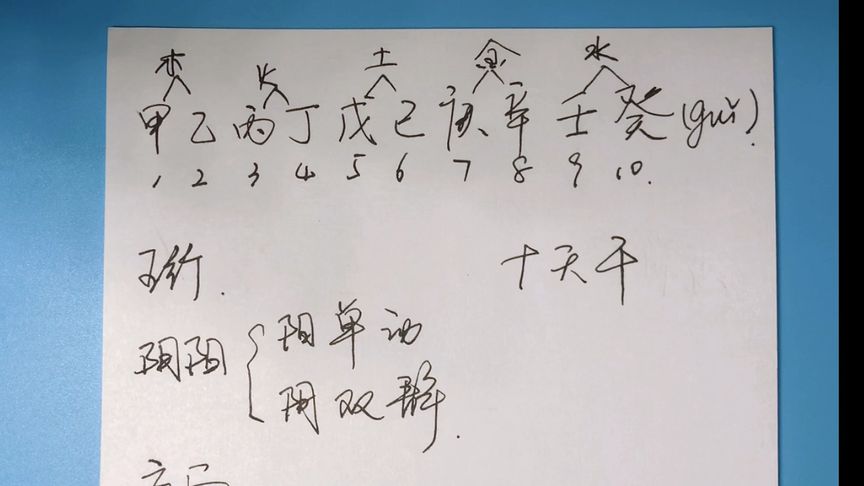 木 火 土 金 水
甲 乙 丙 丁 戊 己 庚 辛 壬 癸 (guǐ).
1 2 3 4 5 6 7 8 9 10.
五行. 十天干
阴阳 { 阳单动
阴双静.